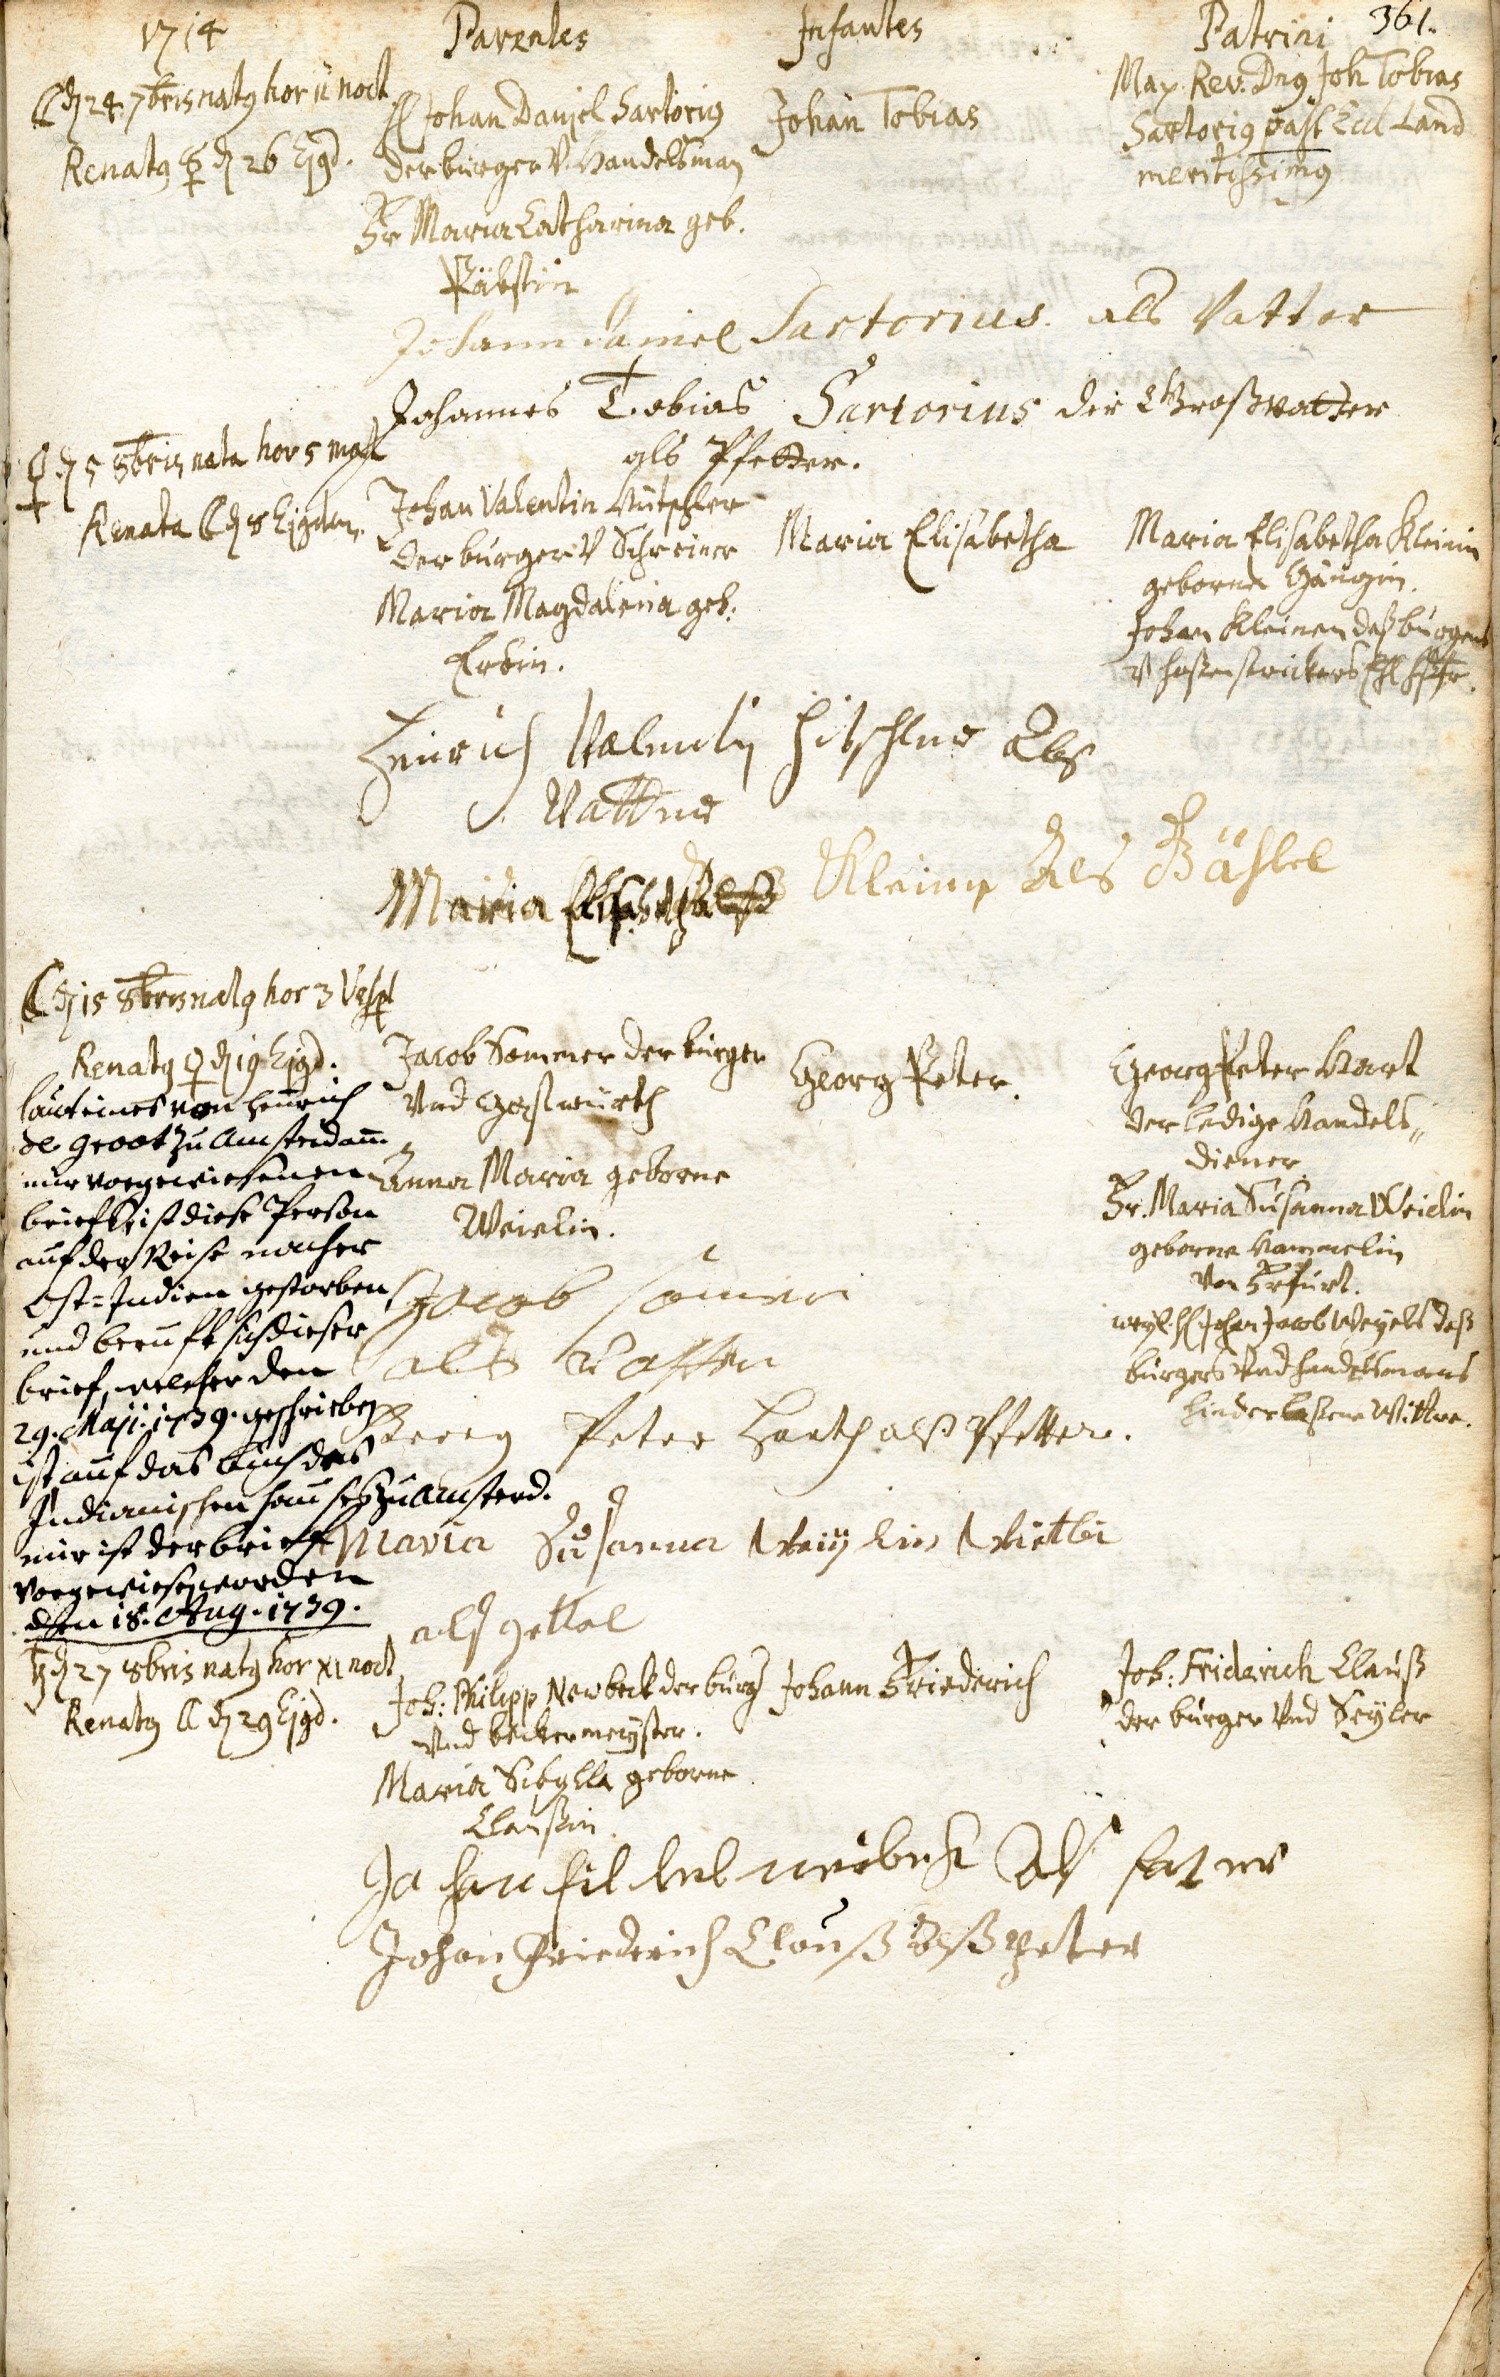 1714 Parentes Infantes Patrini 361.
☾ d 24. 7bris natq hor 11 noct.
Renatq ☿ d 26 Ejgd.
H Johan Daniel Sartoriq
der burger V. Handelsman
Fr Maria Catharina geb.
Päbstin
Johan Tobias
Max. Rev. Dnq Joh Tobias
Sartoriq past Eccl Land
meritissimq
Johann Daniel Sartorius. als Vatter
Johannes Tobias Sartorius der Großvatter
als Pfetter.
♀ d 5 8bris nata hor 5 mat
Renata ☾ d 8 Ejgdem.
Johan Valentin Hütschler
der burger V Schreiner
Maria Magdalena geb.
Erbin.
Maria Elisabetha
Maria Elisabetha Kleinin
geborne
Johan Kleinen deß burgers
V hosenstrickers Ehl.
Heinrich Valentin Hitschler Als
Vatter
Maria Elisabetha Kleinin Als Bäßlel
☾ d 15 8bris natq hor 3 Vesp
Renatq ♀ d 19 Ejgd.
Jacob Sommer der burger
Vnd Gastwürth
Anna Maria geborne
Weielin.
Georg Peter.
Georg Peter Hart
der ledige Handels„
diener
Fr. Maria Susanna Weielin
geborne Hammelin
von Erfurt.
weyl. H Johan Jacob Weyels deß
burgers Vnd handelsmans
hinderlaßene Wittwe.
laut eines von Henrich
de Groot zu Amsterdam
mir vorgewiesenen
brieffs ist diese Person
auf der Reise nacher
Ost=Indien gestorben
und berufft sich dieser
brief, welcher den
29. Maji. 1739. geschrieben
ist auf das buch des
Indianischen hauses zu Amsterd.
mir ist der brieff
vorgewiesen worden
den 18. Aug. 1739.
Jacob somer
als Vatter
Georg Peter Harth alß Pfetter.
Maria Susanna Weiylin Wittib
alß gettel
♄ d 27 8bris natq hor XI noct
Renatq ☾ d 29 Ejgd.
Joh: Philipp Newbeck der burg
Vnd beckermeyster.
Maria Sibylla geborne
Claußin
Johann Friederich
Joh: Friderich Clauß
der burger Vnd Seyler
Johan neubeck Als fatter
Johan Friederich Clauß Alß peter